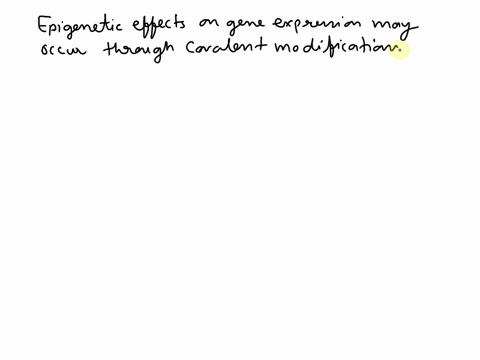 Epigenetic effects on gene expression may
occur through covalent modification.